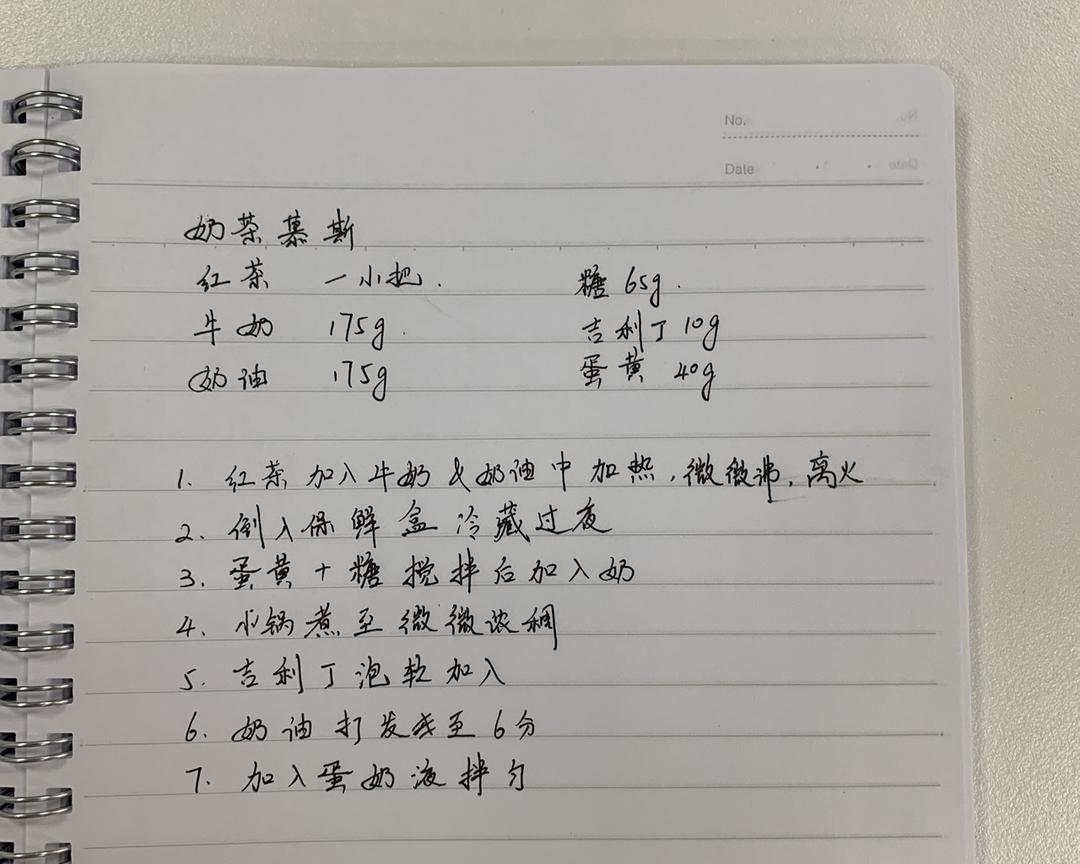 No.
Date
奶茶慕斯
红茶 一小把. 糖 65g.
牛奶 175g. 吉利丁 10g
奶油 175g 蛋黄 40g
1. 红茶加入牛奶&奶油中加热,微微沸,离火
2. 倒入保鲜盒冷藏过夜
3. 蛋黄+糖搅拌后加入奶
4. 小锅煮至微微浓稠
5. 吉利丁泡软加入
6. 奶油打发至6分
7. 加入蛋奶液拌匀